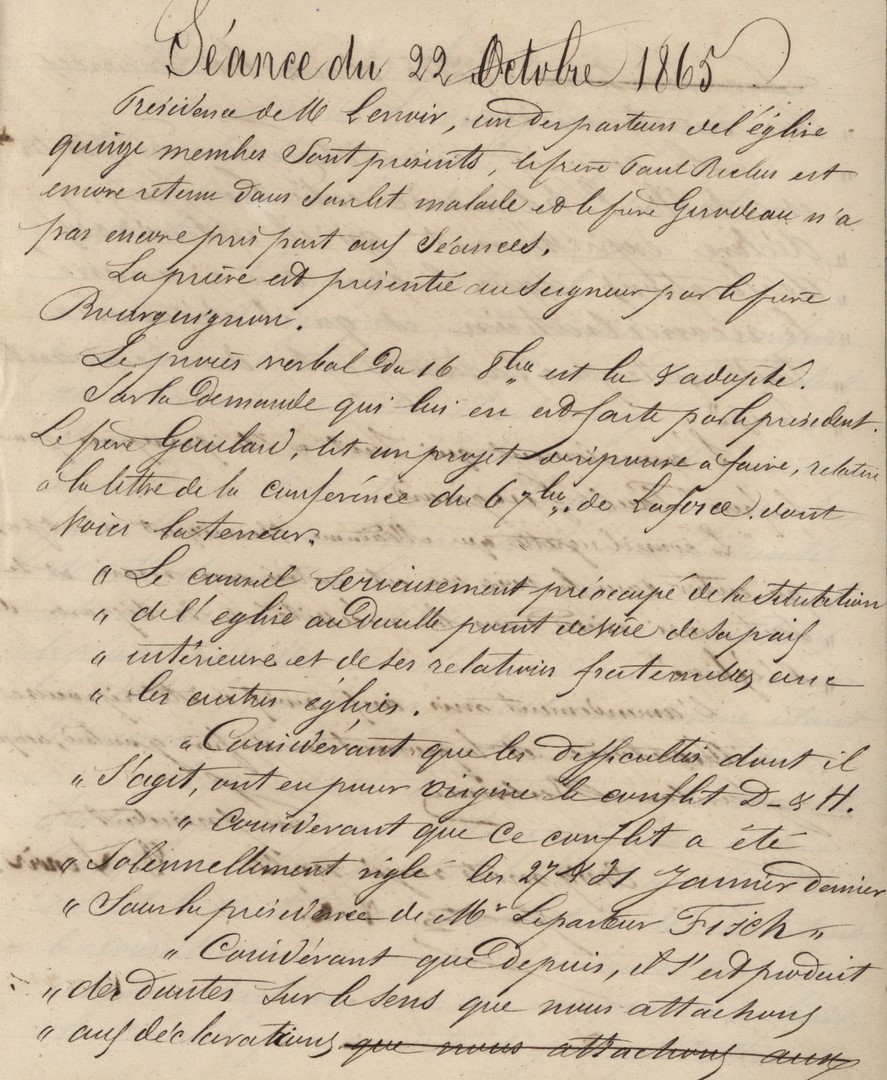 Séance du 22 Octobre 1865
Présidence de M Lenoir, un des pasteurs de l'église
quinze membres sont présents, le frère Paul Reclus est
encore retenu dans son lit malade et le frère Girodeau n'a
pas encore pris part aux séances.
La prière est présentée au Seigneur par le frère
Bourguignon.
Le procès verbal du 16 8bre est lu & adopté.
Sur la demande qui lui en est faite par le président.
Le frère Goulard, lit un projet de réponse à faire, relative
à la lettre de la conférence du 6 7bre de Laforce. dont
voici la teneur.
" Le conseil sérieusement préoccupé de la situation
" de l'église au double point de vue de sa paix
" intérieure et de ses relations fraternelles avec
" les autres églises.
" Considérant que les difficultés dont il
" s'agit, ont eu pour origine le conflit D_ & H.
" Considerant que ce conflit a été
" Solennellement réglé les 27 & 31 Janvier dernier
" Sous la présidence de Mr Le pasteur Fisch "
" Considérant que depuis, il s'est produit
" des doutes sur le sens que nous attachons
" aux déclarations que nous attachons aux